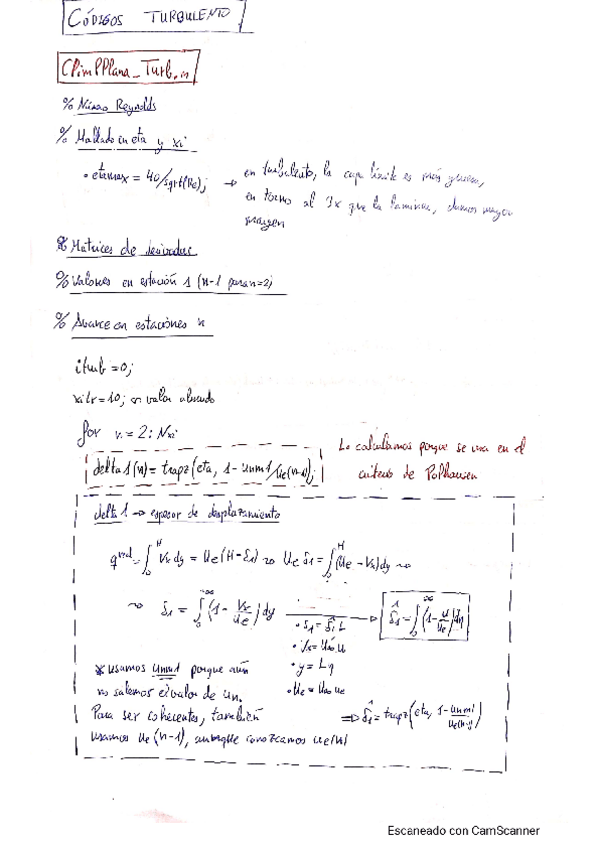 CÓDIGOS TURBULENTO
CPimPPlana_Turb.m
% Número Reynolds
% Mallado en eta y xi
• etamax = 40/sqrt(Re); → en turbulento, la capa límite es más gruesa,
en torno al 3x que la laminar, damos mayor
margen
% Matrices de derivadas
% Valores en estación 1 (n-1 para n=2)
% Avance en estaciones n
iturb = 0;
xitr = 10; valor elevado
for n = 2:Nxi
delta1(n) = trapz(eta, 1 - unm1/ue(n-1));
Lo calculamos porque se usa en el
criterio de Polhausen
delta 1 → espesor de desplazamiento
q^red = ∫₀^H Vx dy = Ue(H - δ1) ⇝ Ue δ1 = ∫₀^H (Ue - Vx)dy ⇝
⇝ δ1 = ∫₀^∞ (1 - Vx/Ue) dy → δ̂1 = ∫₀^∞ (1 - u/ue) dη
• δ1 = δ̂1 L
• Vx = U∞ u
• y = L η
• Ue = U∞ ue
* usamos unm1 porque aún
no sabemos el valor de un.
Para ser coherentes, también
usamos ue(n-1), aunque conozcamos ue(n)
⇒ δ̂1 = trapz(eta, 1 - unm1/ue(n-1))
Escaneado con CamScanner